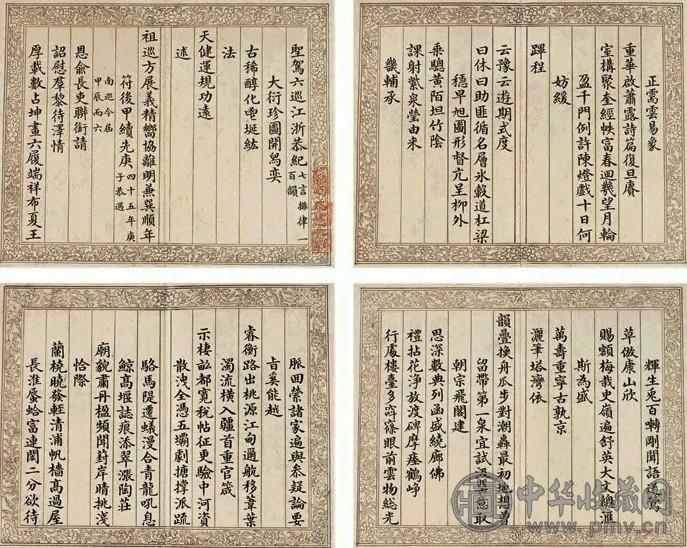 聖駕六巡江浙恭紀 七言排律一百韻
大衍珍圖開舄奕
古稀醇化鬯埏紘
法
天健運規功遠
述
祖巡方展義精嚮協離明兼巽順年
符後甲續先庚 四十五年庚子恭遇
南巡今屆甲辰而六
恩俞長吏聯銜請
詔慰群黎待澤情
厚載數占坤畫六履端祥布夏王
正需雲易象
重華啟蕭露詩篇復旦賡
室搆聚奎經帙富春迴幾望月輪
盈千門例許陳燈戲十日何
妨緩
蹕程
云豫云遊期式度
曰休曰助匪循名層氷轂道杠梁
穩早旭圖形督亢呈柳外
乘驄黃陌坦竹陰
課射紫泉瑩由來
畿輔承
脈田縈諸家遍與叅疑論要
㫖奚能越
睿衡路出桃源江甸過航移葦葉
濁流橫入疆首重官箴
示棲畝都寬稅帖征更驗中河資
散洩全憑五壩劇撐派疏
駱馬隄遷蟻漫合青龍吼息
鯨高堰誌痕添翠漲陶莊
廟貌肅丹楹頻開葑岸晴挑淺
恰際
蘭橈曉發輕清浦帆檣高過屋
長淮蜃蛤富連閎二分欲待
輝生兎百囀剛聞語鶯
草倣康山欣
賜額梅栽史嶺遍舒英大文總滙
斯為盛
萬壽重寧古孰京
灑筆塔灣依
韻疊換舟瓜步對潮轟最初地想曾
留帶第一泉宜試意取
朝宗飛閣建
思深數典列函盛繞廊佛
禮拈花淨放渡碑摩瘞鶴崢
行處樓臺多窈篠眼前雲物總光
中华收藏网
www.pmv.cn